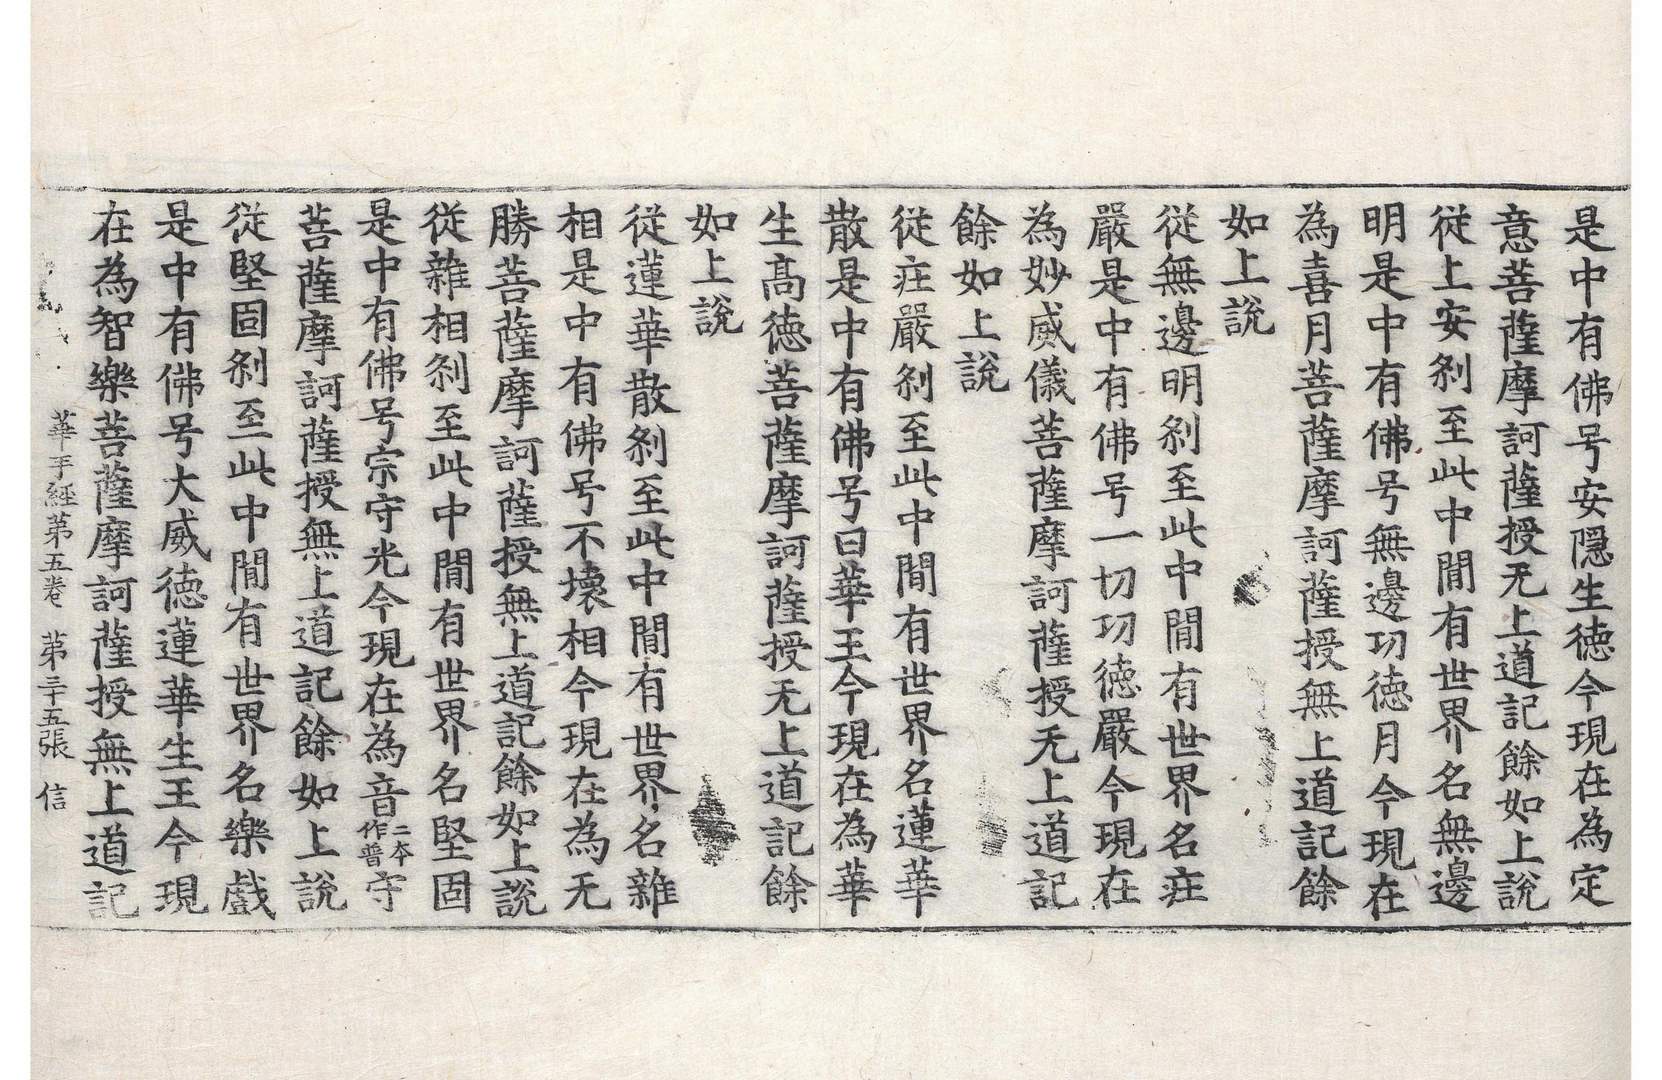 是中有佛号安隱生德今現在為定
意菩薩摩訶薩授无上道記餘如上說
從上安刹至此中閒有世界名無邊
明是中有佛号無邊功德月今現在
為喜月菩薩摩訶薩授無上道記餘
如上說
從無邊明刹至此中閒有世界名庄
嚴是中有佛号一切功德嚴今現在
為妙威儀菩薩摩訶薩授无上道記
餘如上說
從庄嚴刹至此中閒有世界名蓮華
散是中有佛号曰華王今現在為華
生髙德菩薩摩訶薩授无上道記餘
如上說
從蓮華散刹至此中閒有世界名雜
相是中有佛号不壞相今現在為无
勝菩薩摩訶薩授無上道記餘如上說
從雜相刹至此中閒有世界名堅固
是中有佛号宗守光今現在為音二本作普守
菩薩摩訶薩授無上道記餘如上說
從堅固刹至此中閒有世界名樂戲
是中有佛号大威德蓮華生王今現
在為智樂菩薩摩訶薩授無上道記
華手經第五卷 第三十五張 信